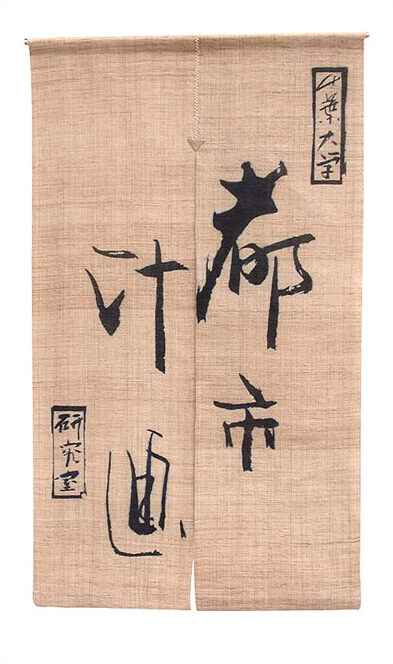 千葉大学
都市
計画
研究室